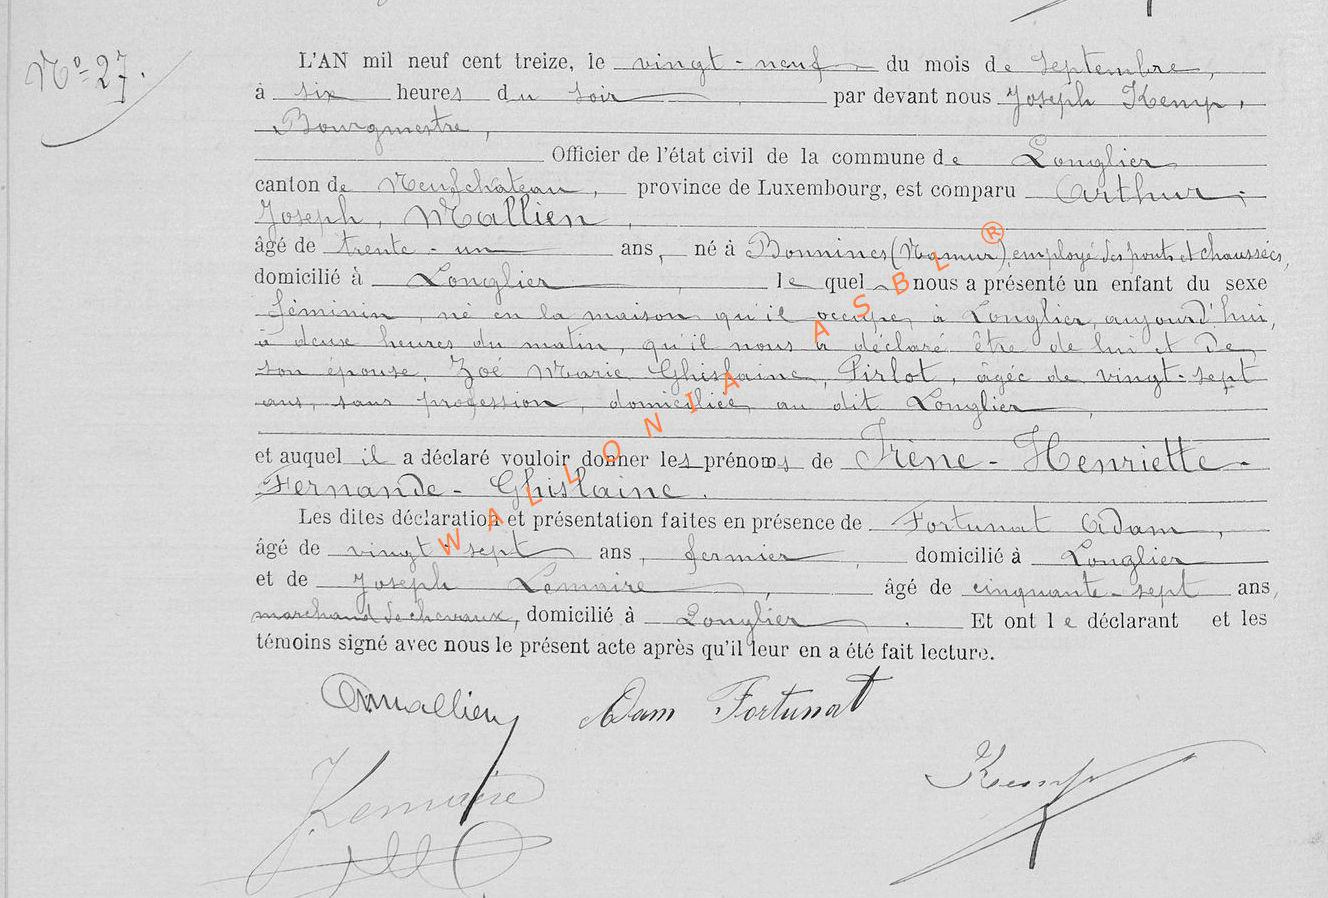 N° 27.
L'AN mil neuf cent treize, le vingt-neuf du mois de Septembre,
à six heures du soir, par devant nous Joseph Kemp,
Bourgmestre,
Officier de l'état civil de la commune de Longlier
canton de Neufchateau, province de Luxembourg, est comparu Arthur,
Joseph, Mallien,
âgé de trente-un ans, né à Bonnines (Namur), employé des ponts et chaussées,
domicilié à Longlier, le quel nous a présenté un enfant du sexe
féminin, né en la maison qu'il occupe, à Longlier, aujourd'hui,
à deux heures du matin, qu'il nous a déclaré être de lui et de
son épouse, Zoé Marie Ghislaine, Pirlot, âgée de vingt-sept
ans, sans profession, domiciliée, au dit Longlier,
et auquel il a déclaré vouloir donner les prénoms de Irène-Henriette-
Fernande-Ghislaine.
Les dites déclaration et présentation faites en présence de Fortunat Adam,
âgé de vingt-sept ans, fermier, domicilié à Longlier
et de Joseph Lemaire, âgé de cinquante-sept ans,
marchand de chevaux, domicilié à Longlier. Et ont le déclarant et les
témoins signé avec nous le présent acte après qu'il leur en a été fait lecture.
AMallien Adam Fortunat
J. Lemaire Kemp
WALLONIA ASBL ®